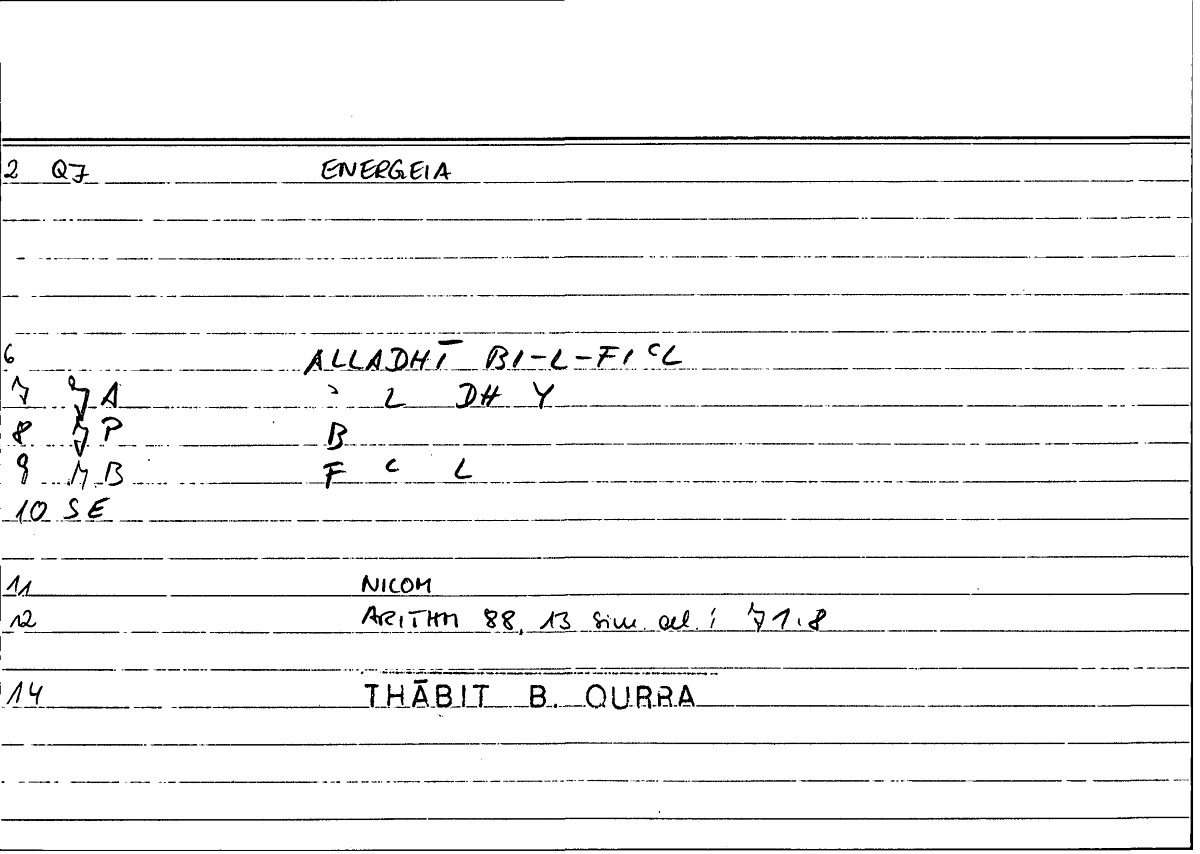 2 Q7 ENERGEIA
6 ALLADHĪ BI-L-FIᶜL
7 7A ʾ L DH Y
8 7P B
9 7B F ᶜ L
10 SE
11 NICOM
12 ARITHM 88, 13 sim. al. ; 71.8
14 THĀBIT B. QURRA